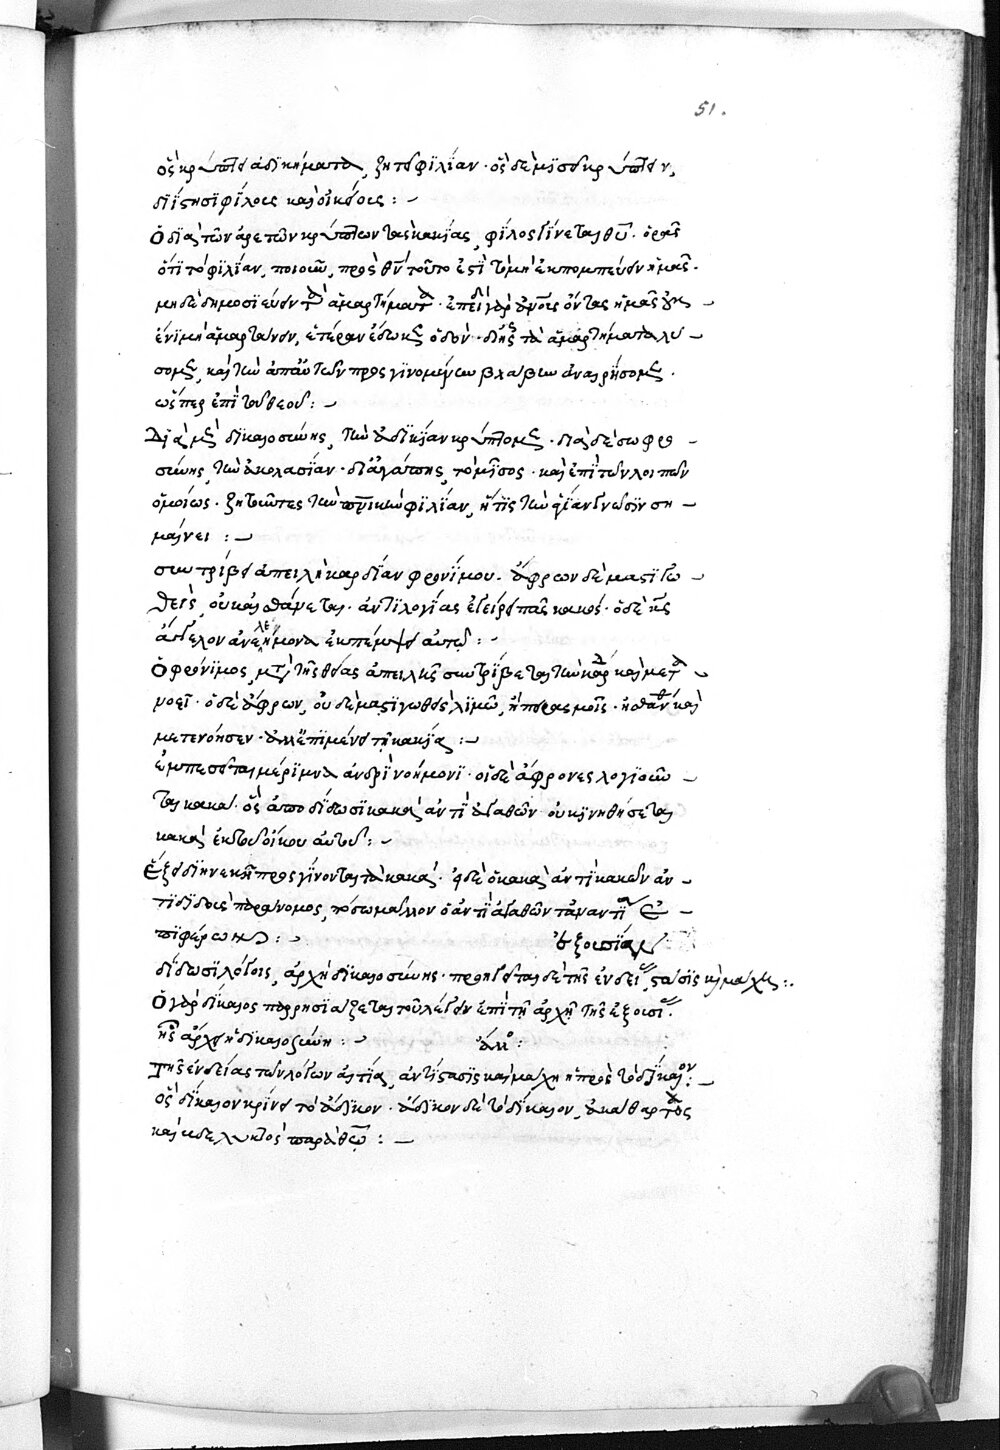 51.
ὃς κρύπτει ἀδικήματα, ζητεῖ φιλίαν· ὃς δὲ μισεῖ κρύπτειν,
διΐστησι φίλους καὶ οἰκείους :-
Ὁ διὰ τῶν ἀρετῶν κρύπτων τὰς κακίας, φίλος γίνεται θῦ. ὁρᾶς
ὅτι τὸ φιλίαν ποιοῦν πρὸς θν̄ τοῦτο ἐστὶ τὸ μὴ ἐκπομπεύειν ἡμᾶς·
μηδὲ δημοσιεύειν τὰ ἁμαρτήματα· ἐπειδὴ γὰρ ἀνοις ὄντας ἡμᾶς οὐκ
ἔνι μὴ ἁμαρτάνειν, ἑτέραν ἔδωκεν ὁδὸν· δι' ἧς τὰ ἁμαρτήματα λύ
σομεν, καὶ τὴν ἀπ' αὐτῶν προσγινομένην βλάβην ἀναιρήσομεν.
ὥσπερ ἐπὶ τοῦ θεοῦ :-
Διὰ μὲν δικαιοσύνης, τὴν ἀδικίαν κρύπτομεν· διὰ δὲ σωφρο
σύνης, τὴν ἀκολασίαν· δι' ἀγάπης, τὸ μῖσος· καὶ ἐπὶ τῶν λοιπῶν
ὁμοίως· ζητοῦντες τὴν πνικὴν φιλίαν, ἥτις τὴν θείαν γνῶσιν ση
μαίνει :-
συντρίβει ἀπειλὴ καρδίαν φρονίμου. ἄφρων δὲ μαστιγω
θεὶς, οὐκ αἰσθάνεται. ἀντιλογίας ἐγείρει πᾶς κακός· ὁ δὲ κς
ἄγγελον ἀνελεήμονα ἐκπέμψει αὐτῷ :-
Ὁ φρόνιμος, μετὰ τῆς θείας ἀπειλῆς συντρίβεται τὴν καρδ καὶ μετα
νοεῖ· ὁ δὲ ἄφρων, οὐδὲ μαστιγωθεὶς λιμῷ, ἢ πειρασμοῖς, ᾔσθανθη καὶ
μετενόησεν· ἀλλ' ἐπιμένει τῇ κακίᾳ :-
ἐμπεσεῖται μέριμνα ἀνδρὶ νοήμονι· οἱ δὲ ἄφρονες λογιοῦν
ται κακά. ὃς ἀποδίδωσι κακὰ ἀντὶ ἀγαθῶν οὐ κινηθήσεται
κακὰ ἐκ τοῦ οἴκου αὐτοῦ :-
Ἕξει διηνεκῆ προσγίνονται τὰ κακά· εἰ δὲ ὁ κακὰ ἀντὶ κακῶν ἀν
τιδιδοὺς παράνομος, πόσῳ μᾶλλον ὁ ἀντὶ ἀγαθῶν τἀναντία
ἐπιφέρων :-
ἐξουσίαν
δίδωσι λόγοις, ἀρχὴ δικαιοσύνης· προηγεῖται δὲ τῆς ἐνδείας στάσις καὶ μάχη :.
Ὁ γὰρ δίκαιος παρρησιάζεται τοῦ λέγειν ἐπὶ τῇ ἀρχῇ τῆς ἐξουσίας.
ἧς ἄρχει ἡ δικαιοσύνη :-
ἄλλο :
Τῆς ἐνδείας τῶν λόγων αἰτία, ἀντίστασις καὶ μάχη ἡ πρὸς τὸ δίκαιον :-
ὃς δίκαιον κρίνει τὸ ἄδικον. ἄδικον δὲ τὸ δίκαιον, ἀκάθαρτος
καὶ βδελυκτὸς παρὰ θῶ :-